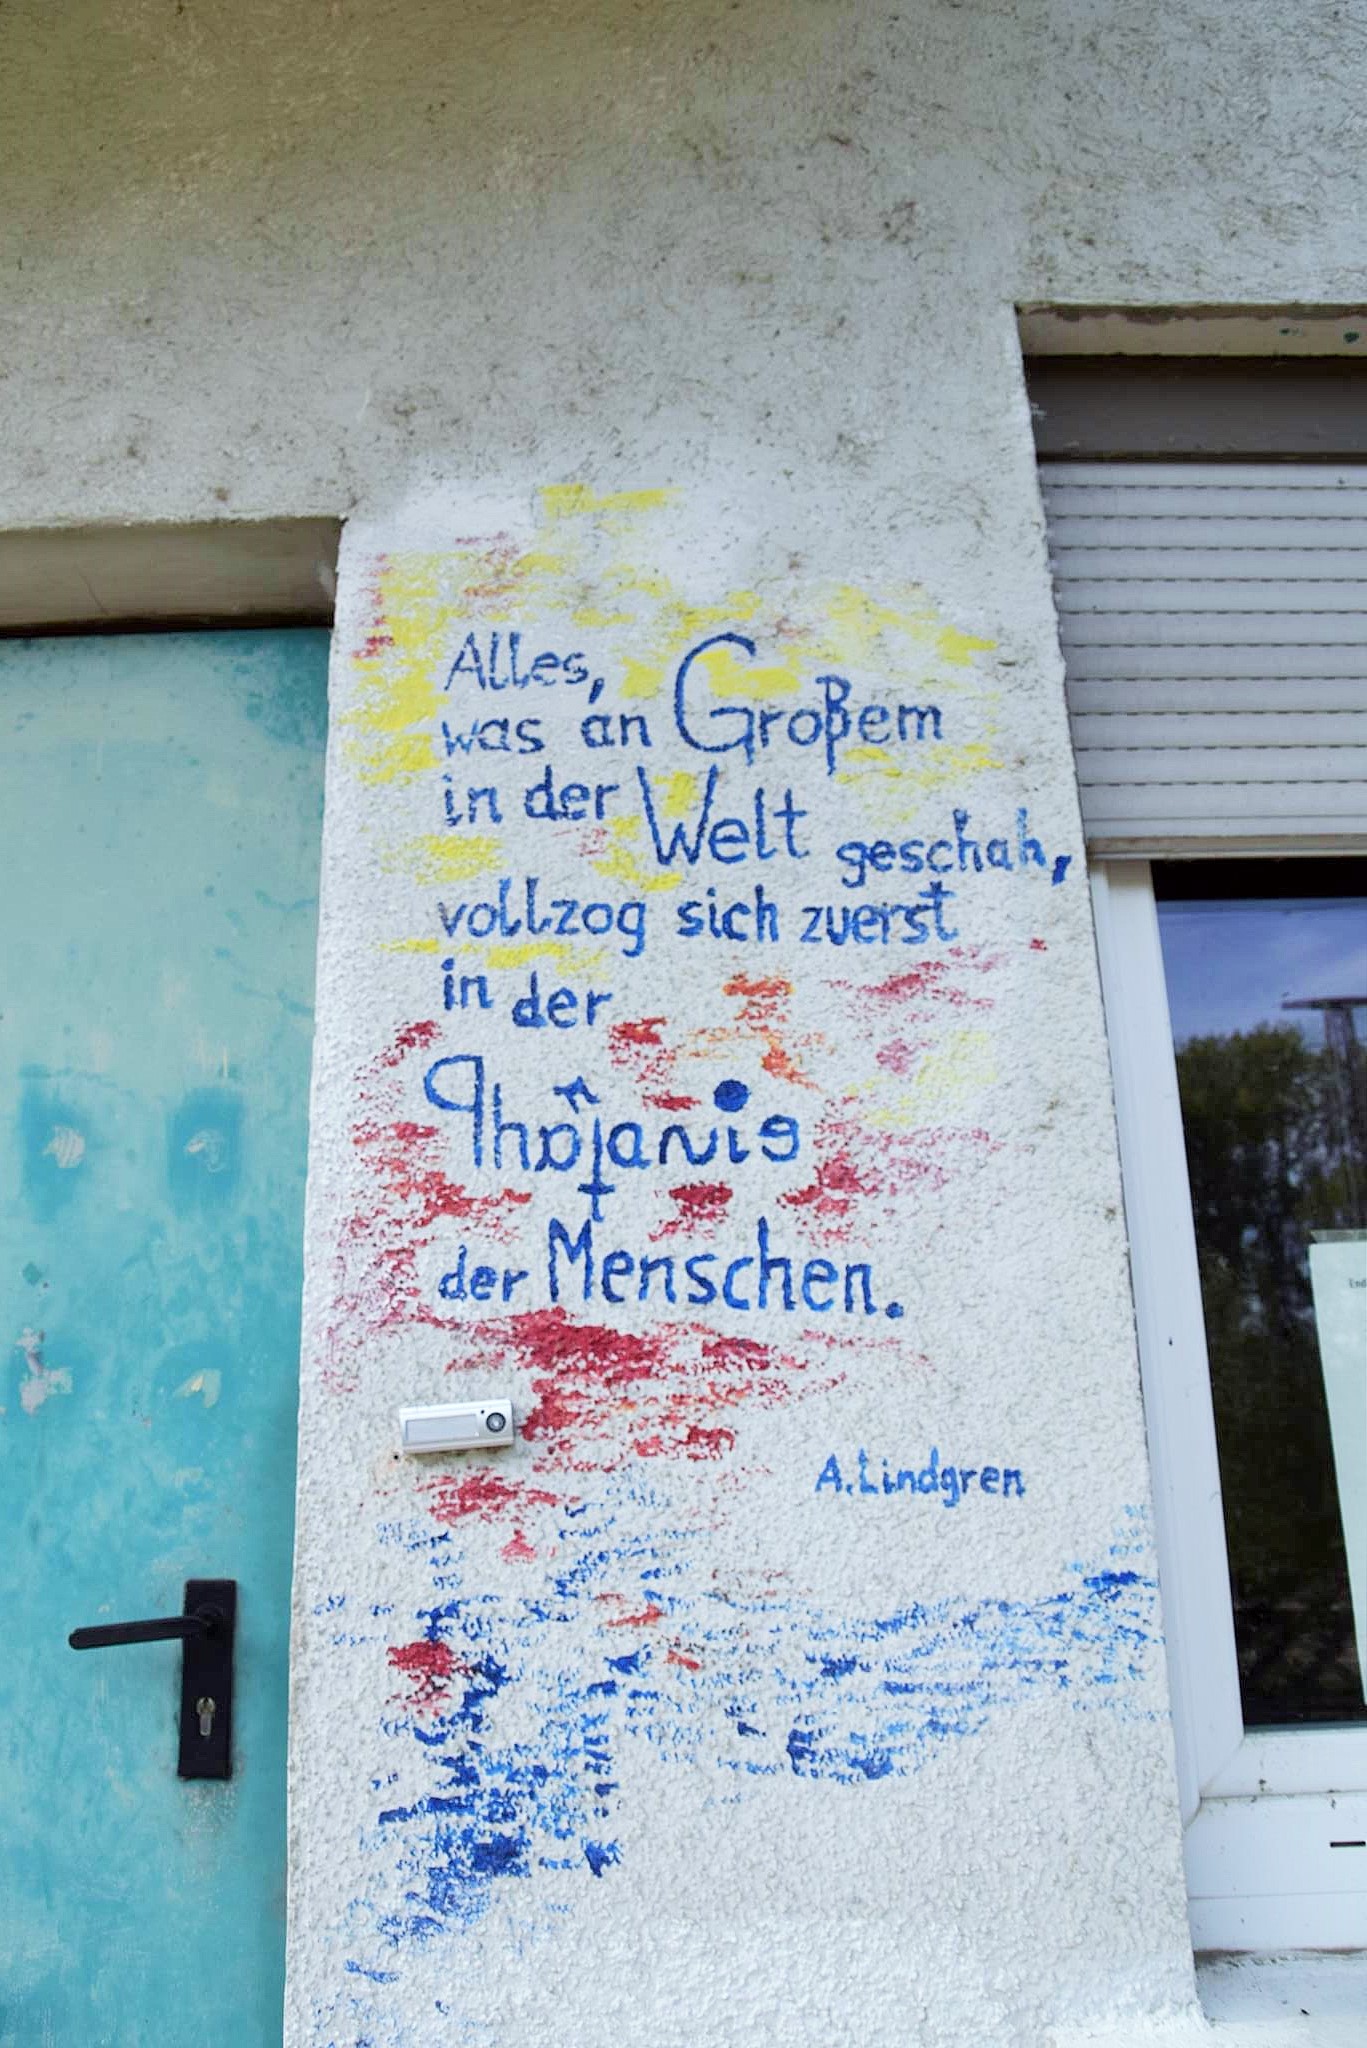 Alles,
was an Großem
in der Welt geschah,
vollzog sich zuerst
in der
Phantasie
der Menschen.
A. Lindgren